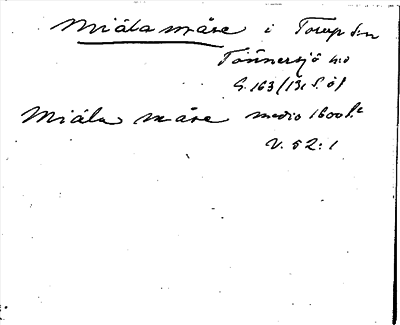 Miåla måse i Torup sn
Tönnersjö hd
G. 163 /
Miåla måse medio 1600 t.
V. 52:1